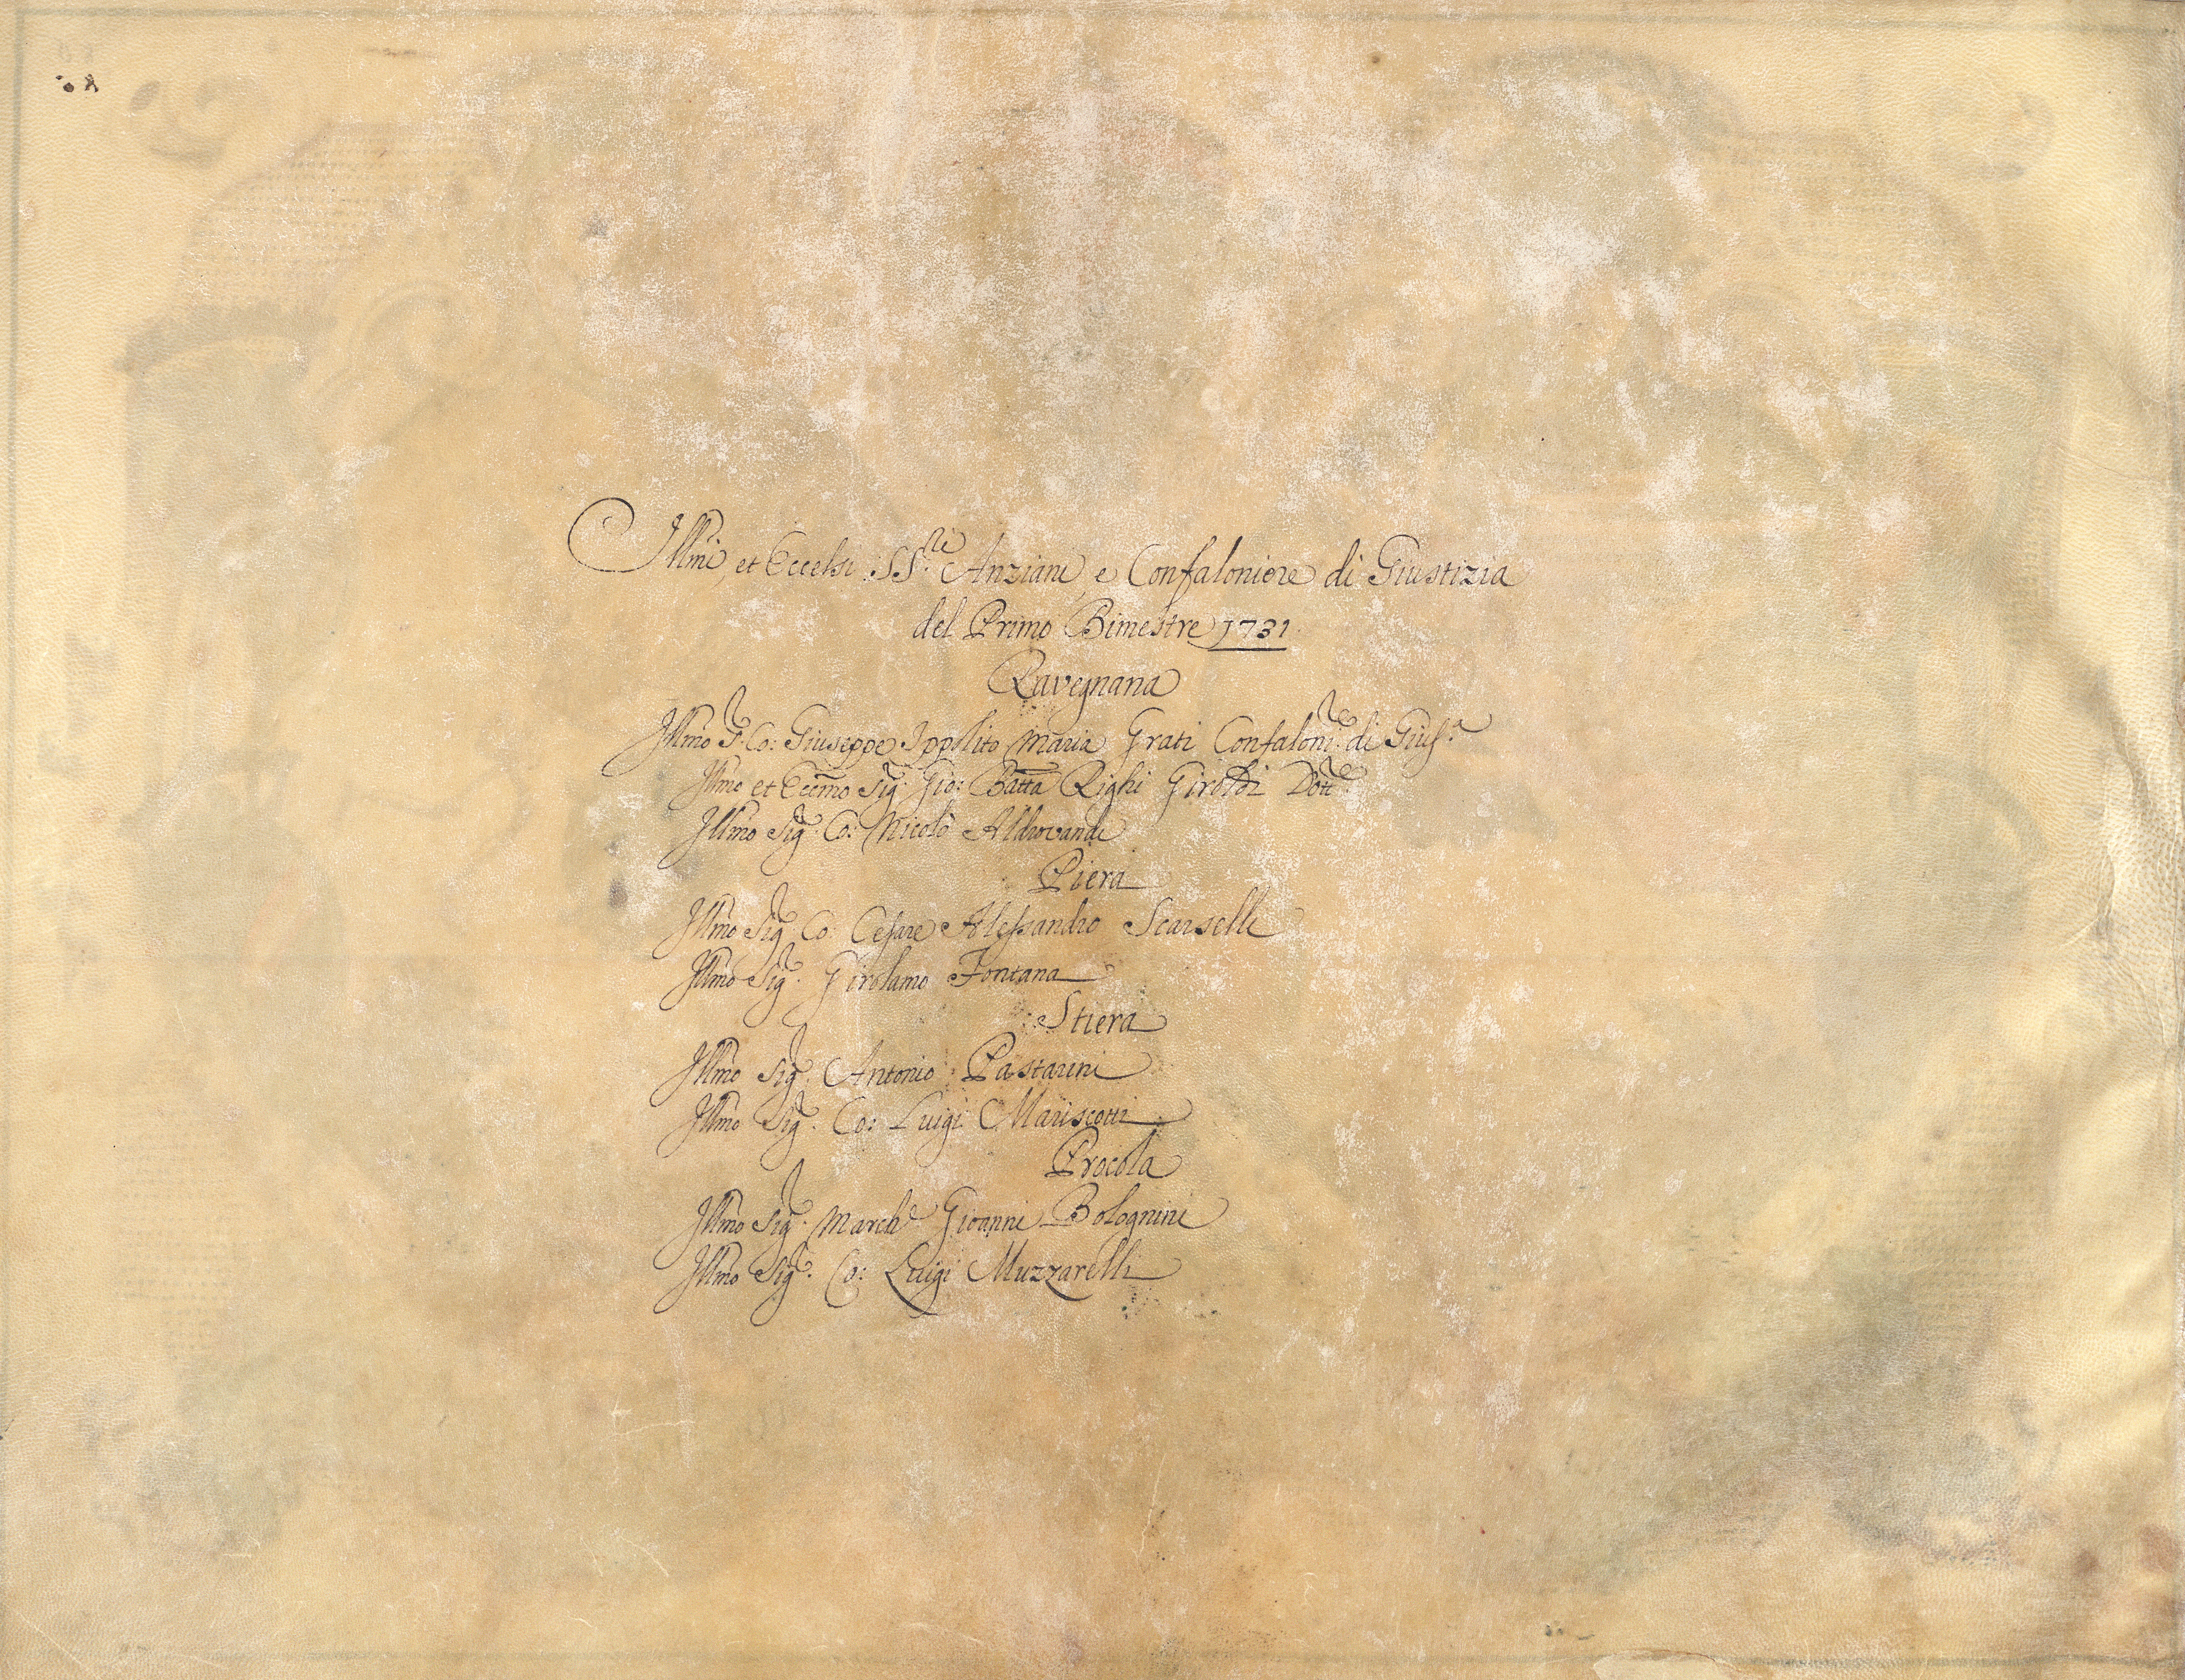 Illmi et Eccelsi SS.ri Anziani, e Confaloniere di Giustizia
del Primo Bimestre 1731
Ravegnana
Illmo S.r Co: Giuseppe Ippolito Maria Grati Confalonr.e di Gius.a
Illmo et Eccmo Sig.r Gio: Batta Righi Giroldi Dott.e
Illmo Sig.r Co: Nicolò Aldrovandi
Piera
Illmo Sig.r Co: Cesare Alessandro Scarselli
Illmo Sig.r Girolamo Fontana
Stiera
Illmo Sig.r Antonio Pastarini
Illmo Sig.r Co: Luigi Mariscotti
Procola
Illmo Sig.r March.e Gioanni Bolognini
Illmo Sig.r Co: Luigi Muzzarelli